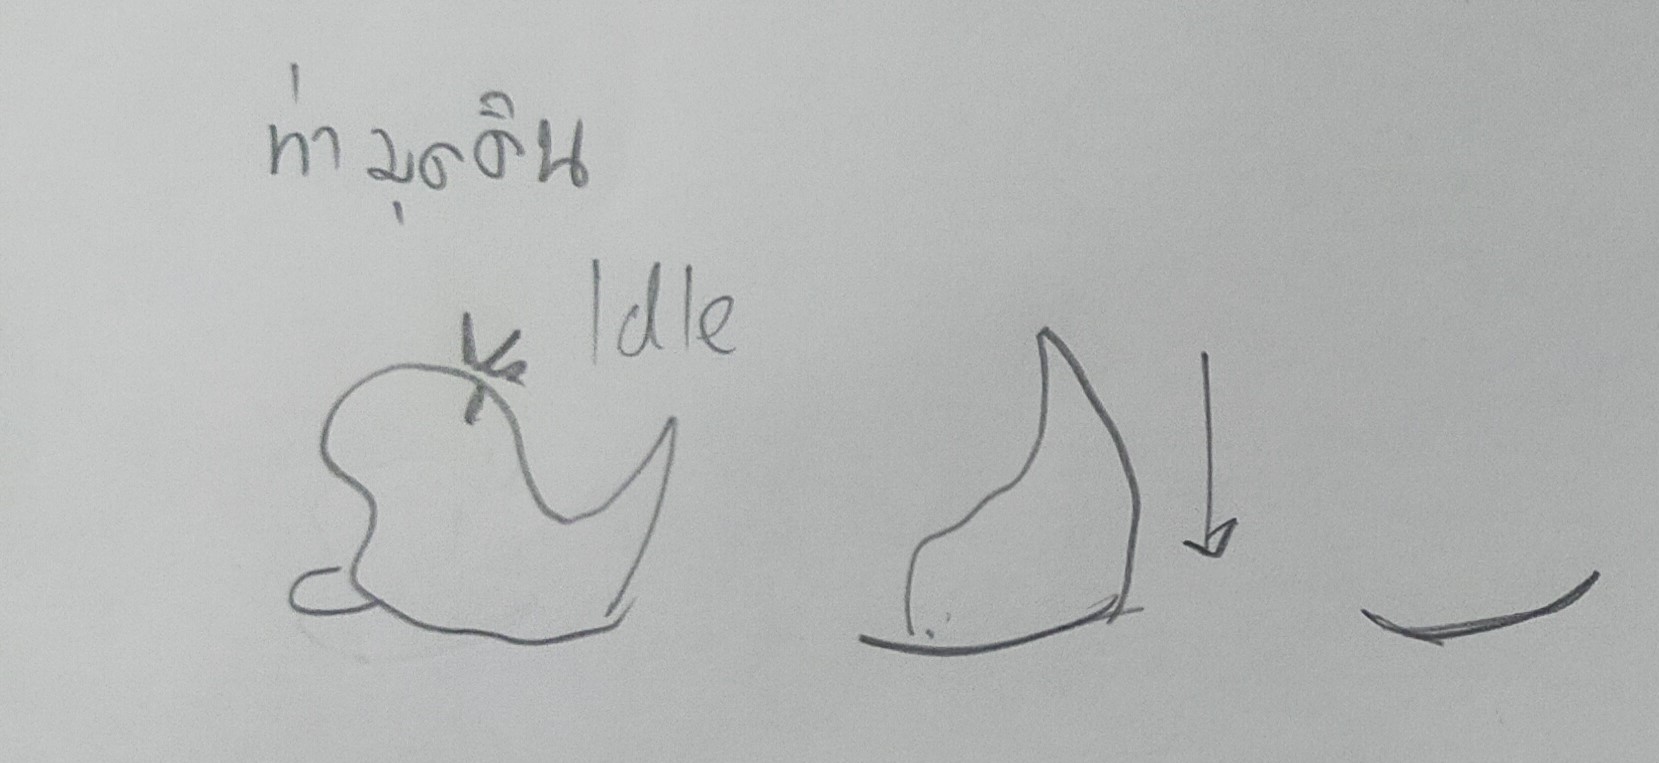 ท่ามุดดิน
Idle